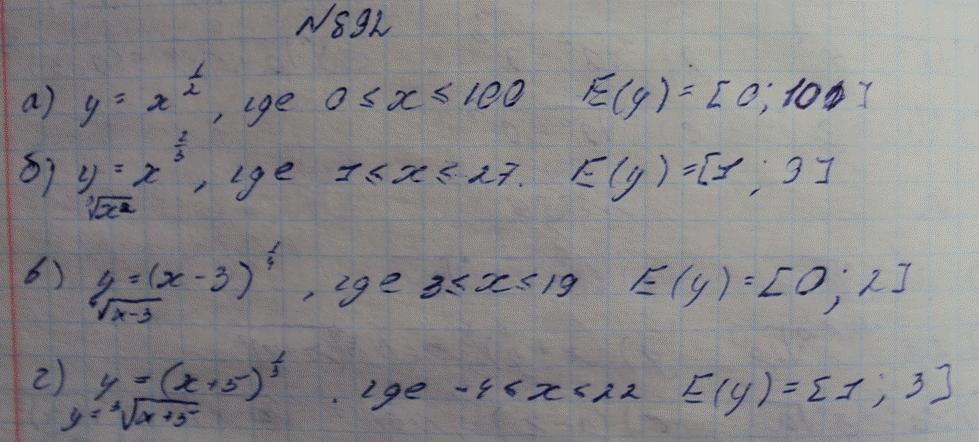 №892
а) y = x^{1/2}, где 0 ≤ x ≤ 100 E(y) = [0; 10]
б) y = x^{2/3}, где 1 ≤ x ≤ 27. E(y) = [1; 9]
∛x²
в) y = (x-3)^{1/4}, где 3 ≤ x ≤ 19 E(y) = [0; 2]
∜x-3
г) y = (x+5)^{1/3}. где -4 ≤ x ≤ 22 E(y) = [1; 3]
y = ∛x+5